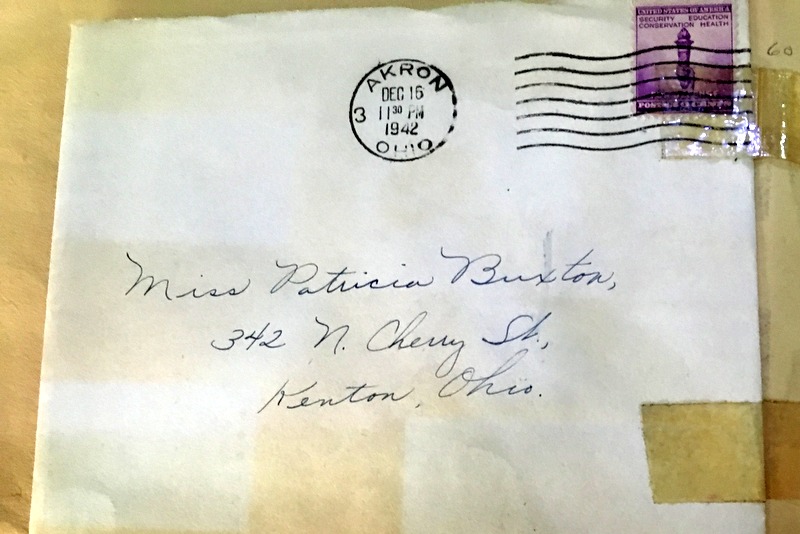 UNITED STATES OF AMERICA
SECURITY EDUCATION
CONSERVATION HEALTH
60
AKRON
DEC 16
3 11 30 PM
1942
OHIO
Miss Patricia Buxton,
342 N. Cherry St.,
Kenton, Ohio.